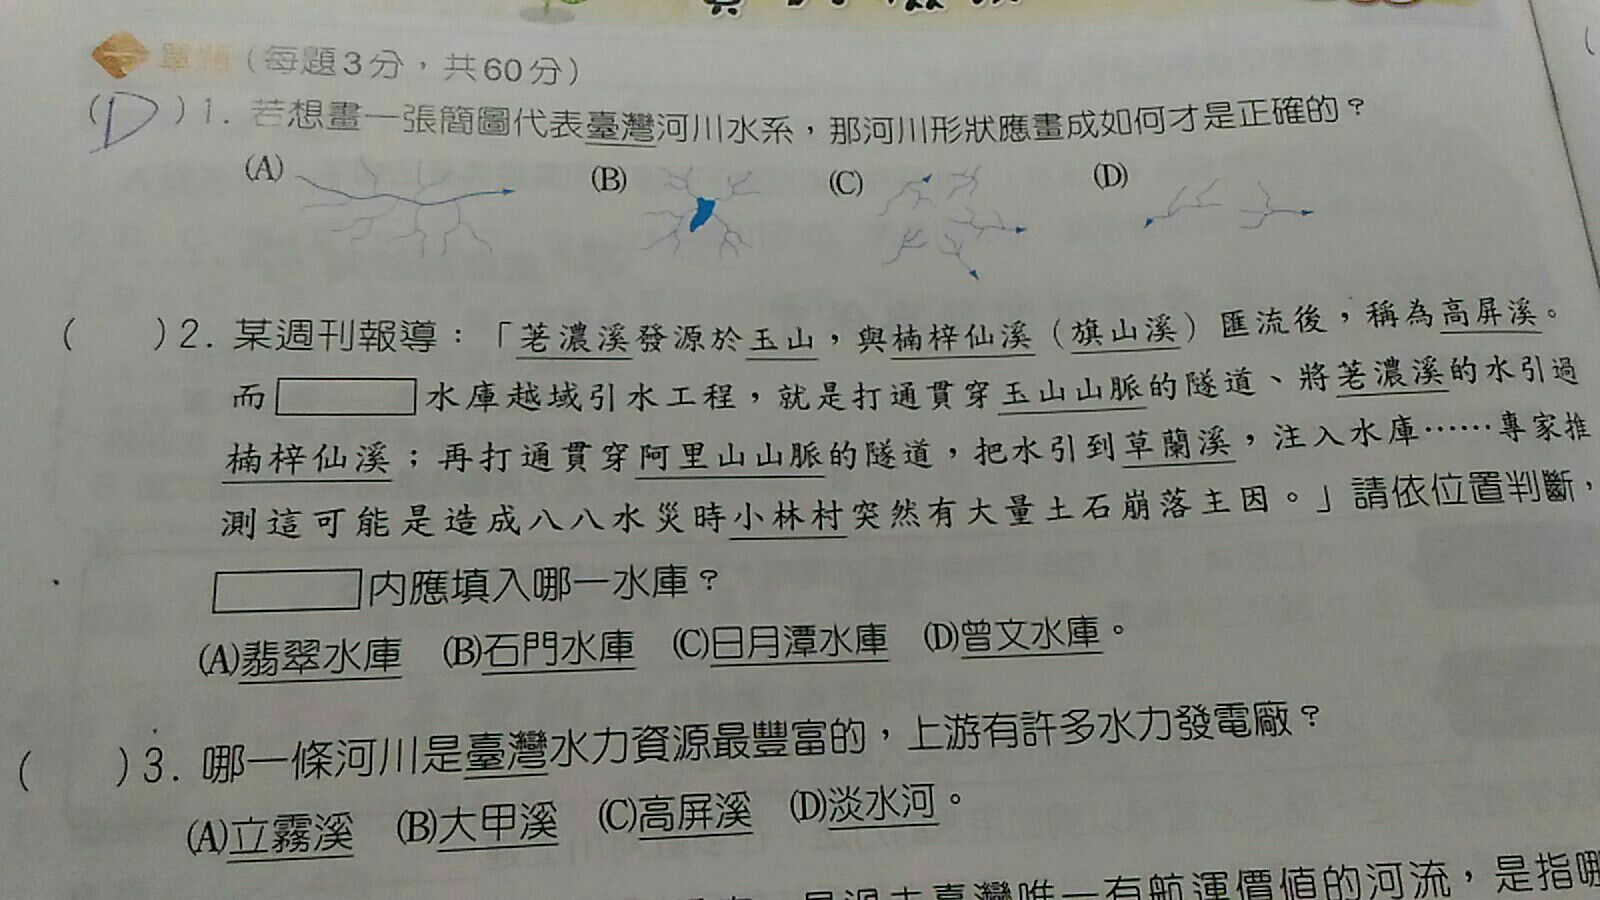 一 單題 (每題3分，共60分)
(D)1. 若想畫一張簡圖代表臺灣河川水系，那河川形狀應畫成如何才是正確的？
(A) (B) (C) (D)
( )2. 某週刊報導：「荖濃溪發源於玉山，與楠梓仙溪（旗山溪）匯流後，稱為高屏溪。
而 水庫越域引水工程，就是打通貫穿玉山山脈的隧道、將荖濃溪的水引過
楠梓仙溪；再打通貫穿阿里山山脈的隧道，把水引到草蘭溪，注入水庫……專家推
測這可能是造成八八水災時小林村突然有大量土石崩落主因。」請依位置判斷，
內應填入哪一水庫？
(A)翡翠水庫 (B)石門水庫 (C)日月潭水庫 (D)曾文水庫。
( )3. 哪一條河川是臺灣水力資源最豐富的，上游有許多水力發電廠？
(A)立霧溪 (B)大甲溪 (C)高屏溪 (D)淡水河。
是過去臺灣唯一有航運價值的河流，是指哪